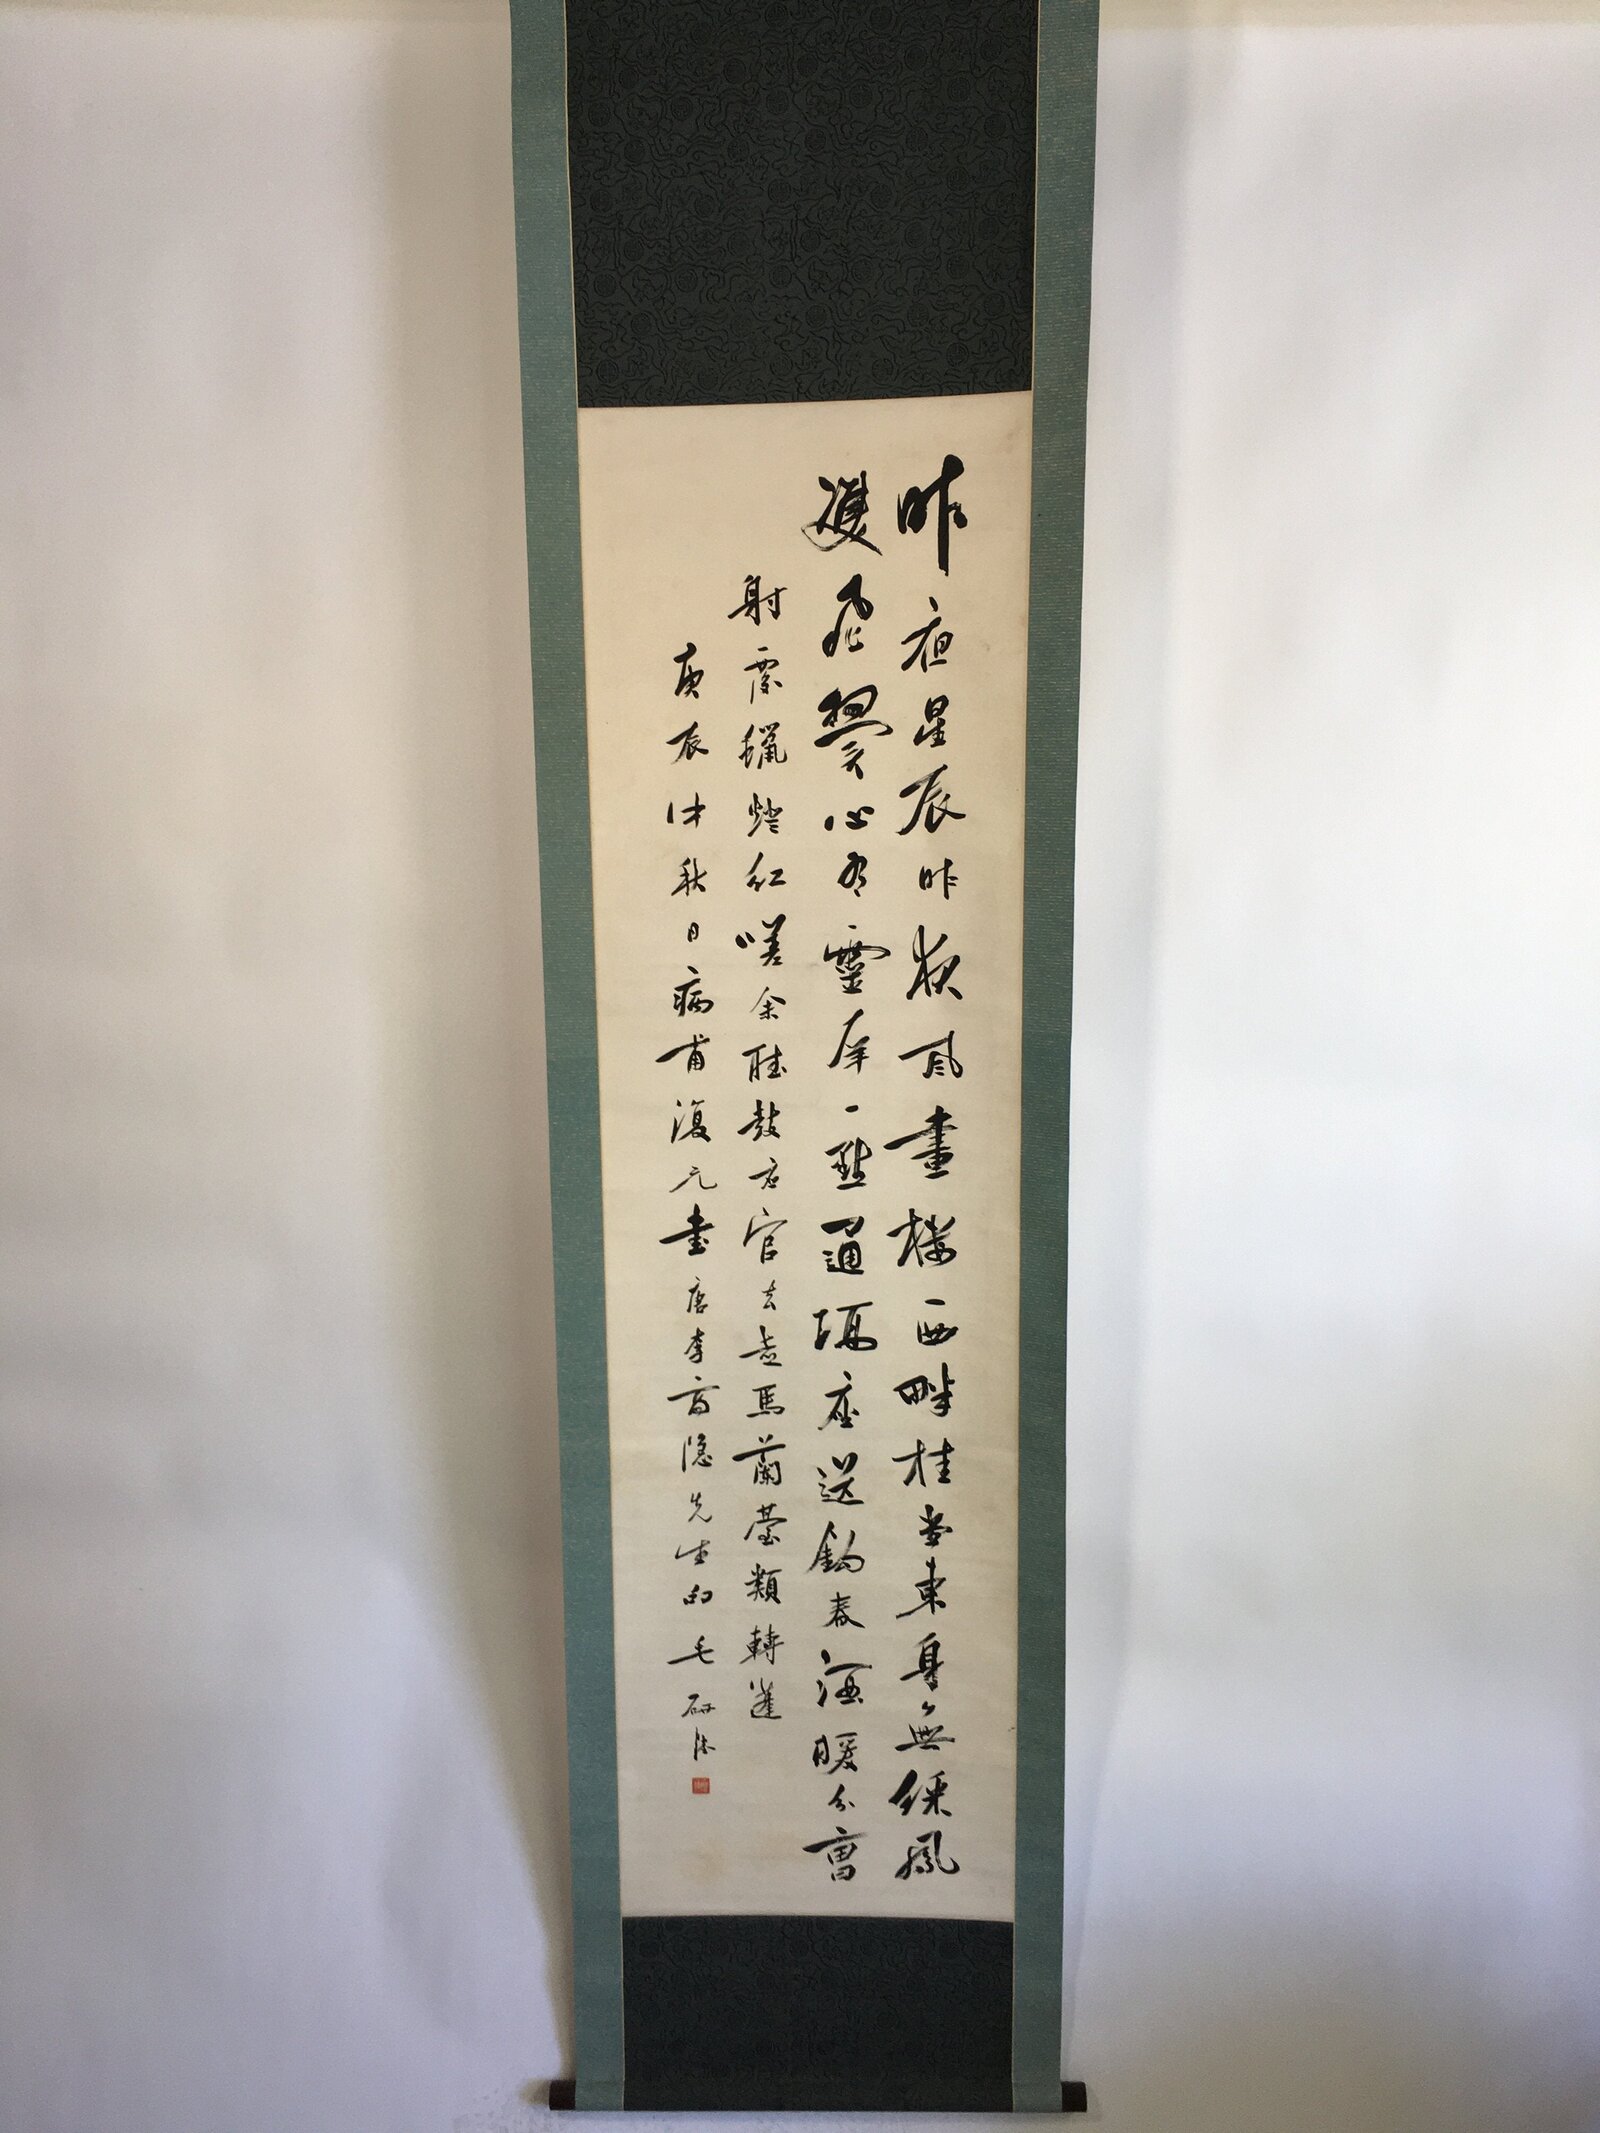 昨夜星辰昨夜風畫樓西畔桂堂東身無綵鳳
雙飛翼心有靈犀一點通隔座送鈎春酒暖分曹
射覆蠟燈紅嗟余聽鼓應官去走馬蘭臺類轉蓬
庚辰仲秋日病甫復元書唐李商隱先生句毛研